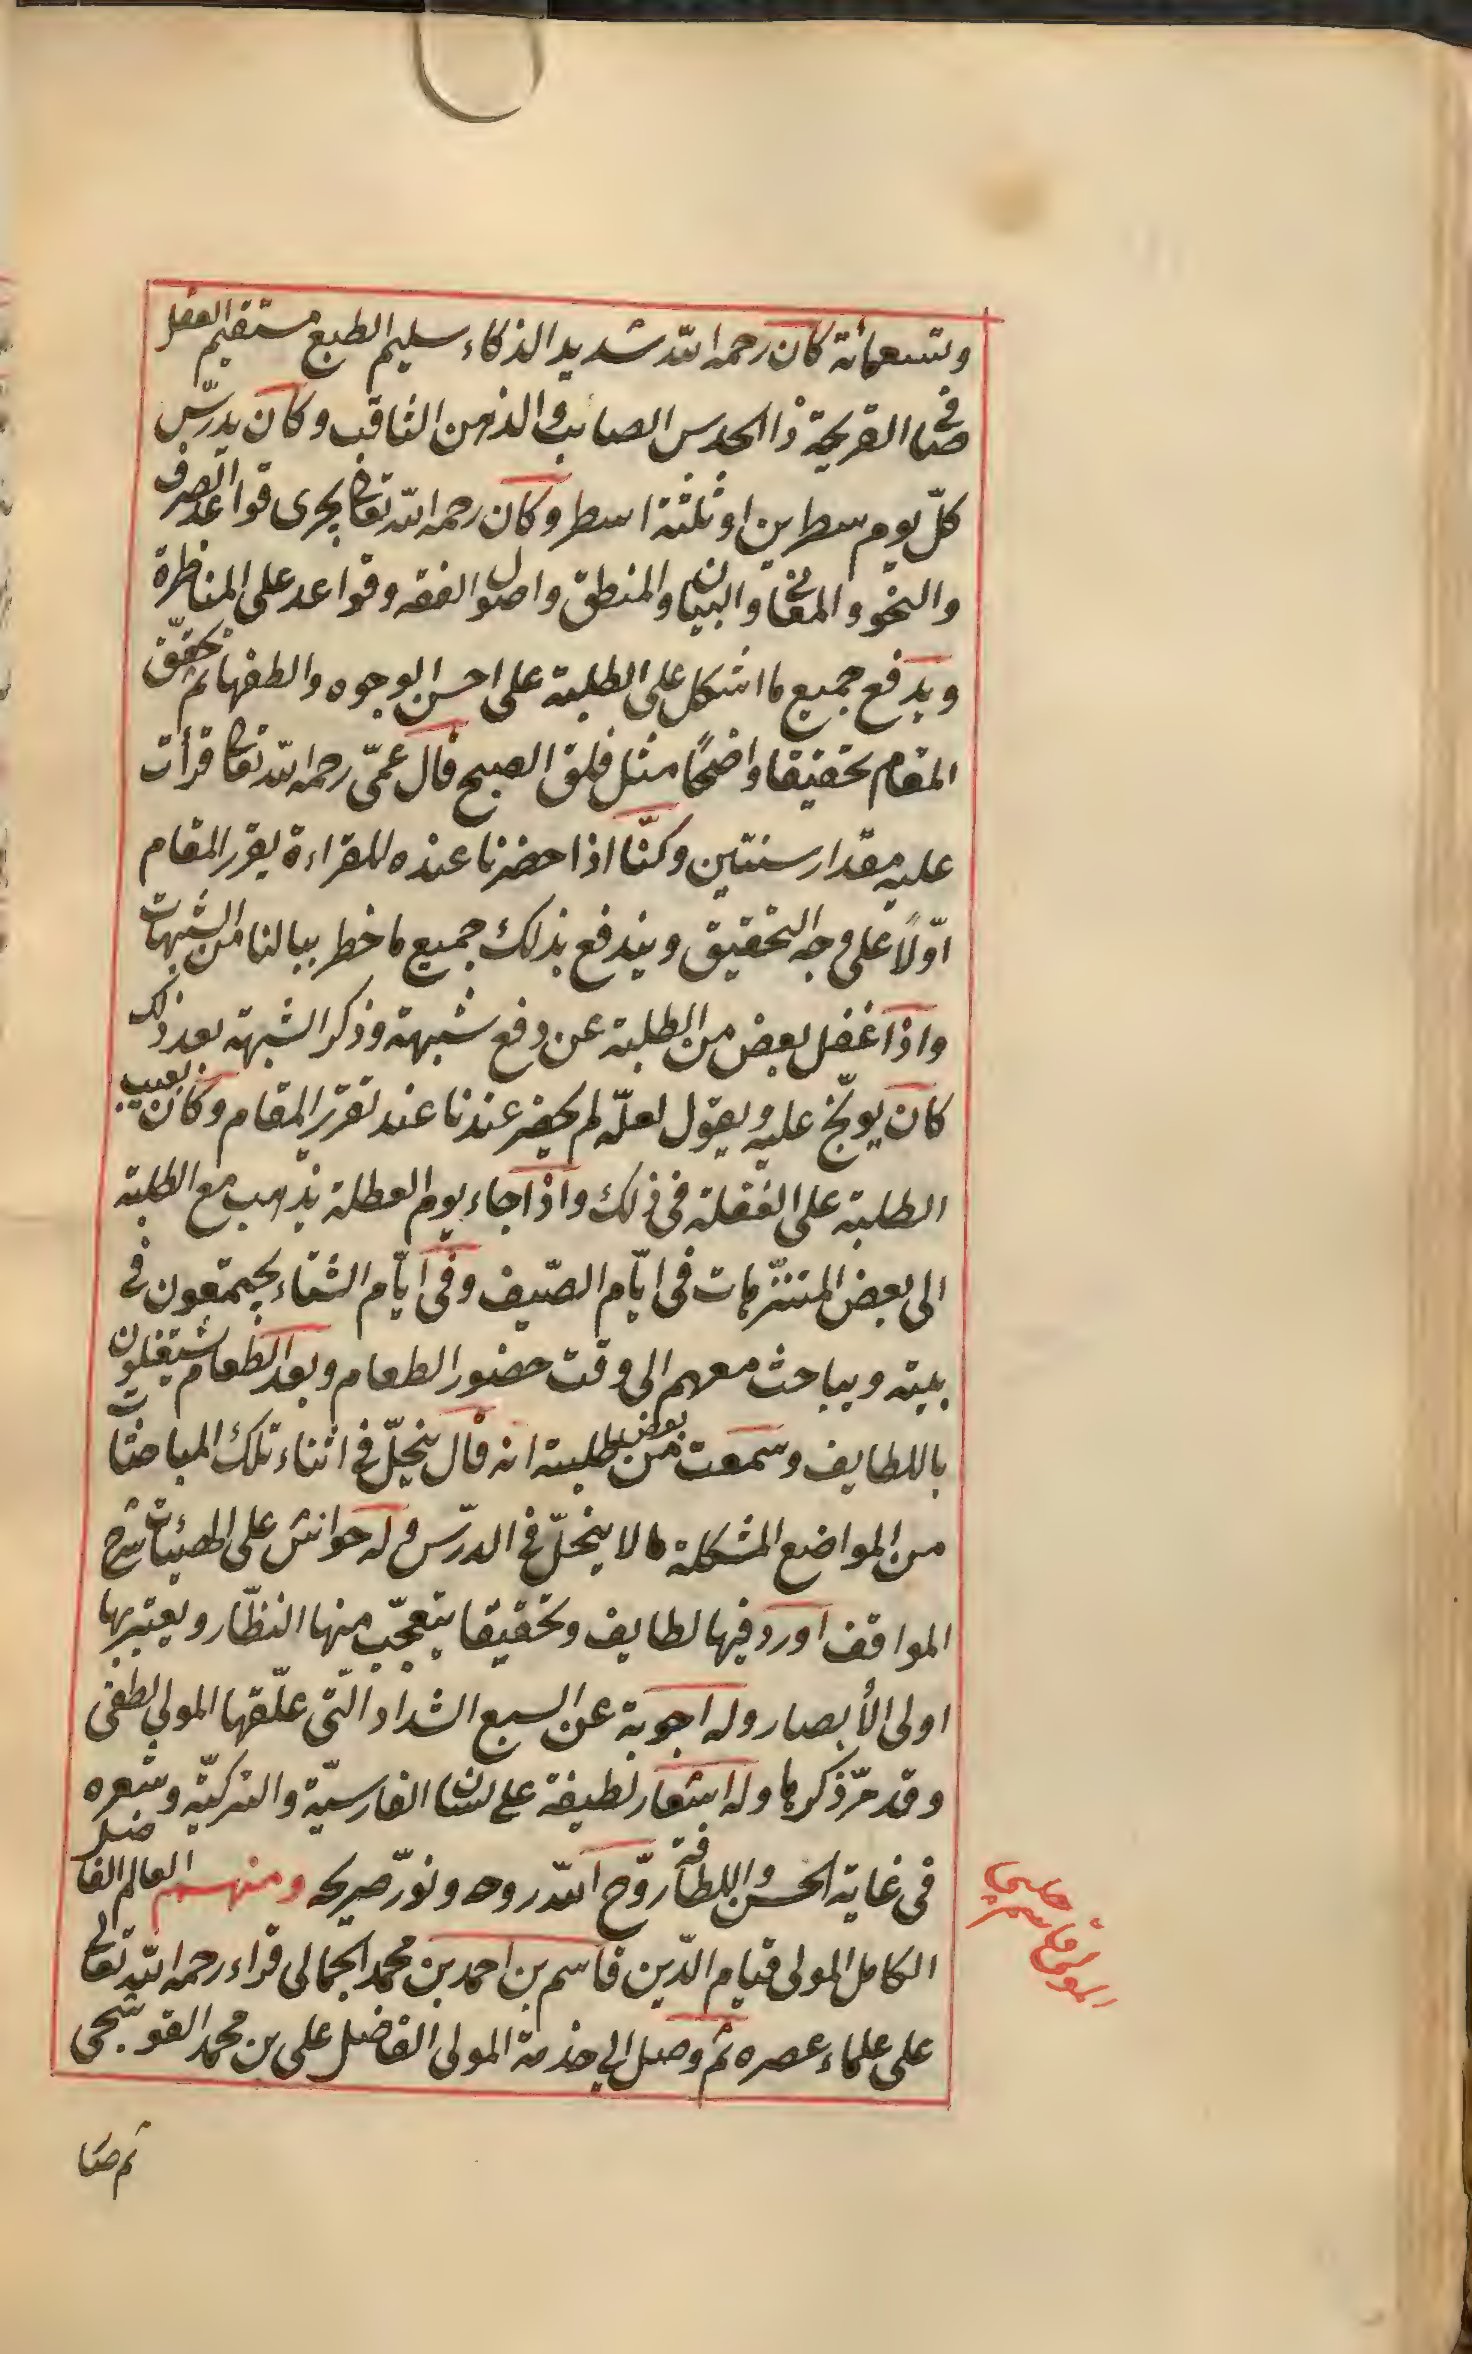 وتسعمائة كان رحمه الله شديد الذكاء سليم الطبع مستقيم العقل
صافى القريحة ذا الحدس الصايب والذهن الثاقب وكان يدرّس
كلّ يوم سطرين او ثلثة اسطر وكان رحمه الله تعالى يجرى قواعد الصرف
والنحو والمعانى والبيان والمنطق واصول الفقه وقواعد على المناظرة
ويدفع جميع ما اشكل على الطلبة على احسن الوجوه والطفها ثم يحقّق
المقام تحقيقا واضحًا مثل فلق الصبح قال عمّى رحمه الله تعالى قرأت
عليه مقدار سنتين وكنّا اذا حضرنا عنده للقراءة يقرر المقام
اوّلاً على وجه التحقيق ويندفع بذلك جميع ما خطر ببالنا من الشبهات
واذا غفل بعض من الطلبة عن دفع شبهة وذكر الشبهة بعد ذلك
كان يوبّخ عليه ويقول لعلّه لم يحضر عندنا عند تقرير المقام وكان يعيب
الطلبة على الغفلة فى ذلك واذا جاء يوم العطلة يذهب مع الطلبة
الى بعض المتنزّهات فى ايّام الصّيف وفى ايّام الشتاء يجتمعون فى
بيته ويباحث معهم الى وقت حضور الطعام وبعد الطعام يشتغلون
باللطايف وسمعت من بعض طلبته انه قال ينحلّ فى اثناء تلك المباحثات
من المواضع المشكلة ما لا ينحلّ فى الدرّس وله حواش على الهيئات شرح
المواقف اورد فيها لطايف وتحقيقا يتعجّب منها النظّار ويعتبربها
اولى الأبصار وله اجوبة عن السبع الشداد الّتى علّقها المولى لطفى
وقد مرّ ذكرها وله اشعار لطيفة على لسان الفارسيّة والتركيّة وشعره
فى غاية الحسن واللطافة روّح الله روحه ونوّر ضريحه ومنهم العالم الفاضل
الكامل المولى قيام الدّين قاسم بن احمد بن محمد الجمالى قراء رحمه الله تعالى
على علماء عصره ثم وصل الى خدمة المولى الفاضل على بن محمد القوشجى
المولى قاسم چلبى
ثم صا